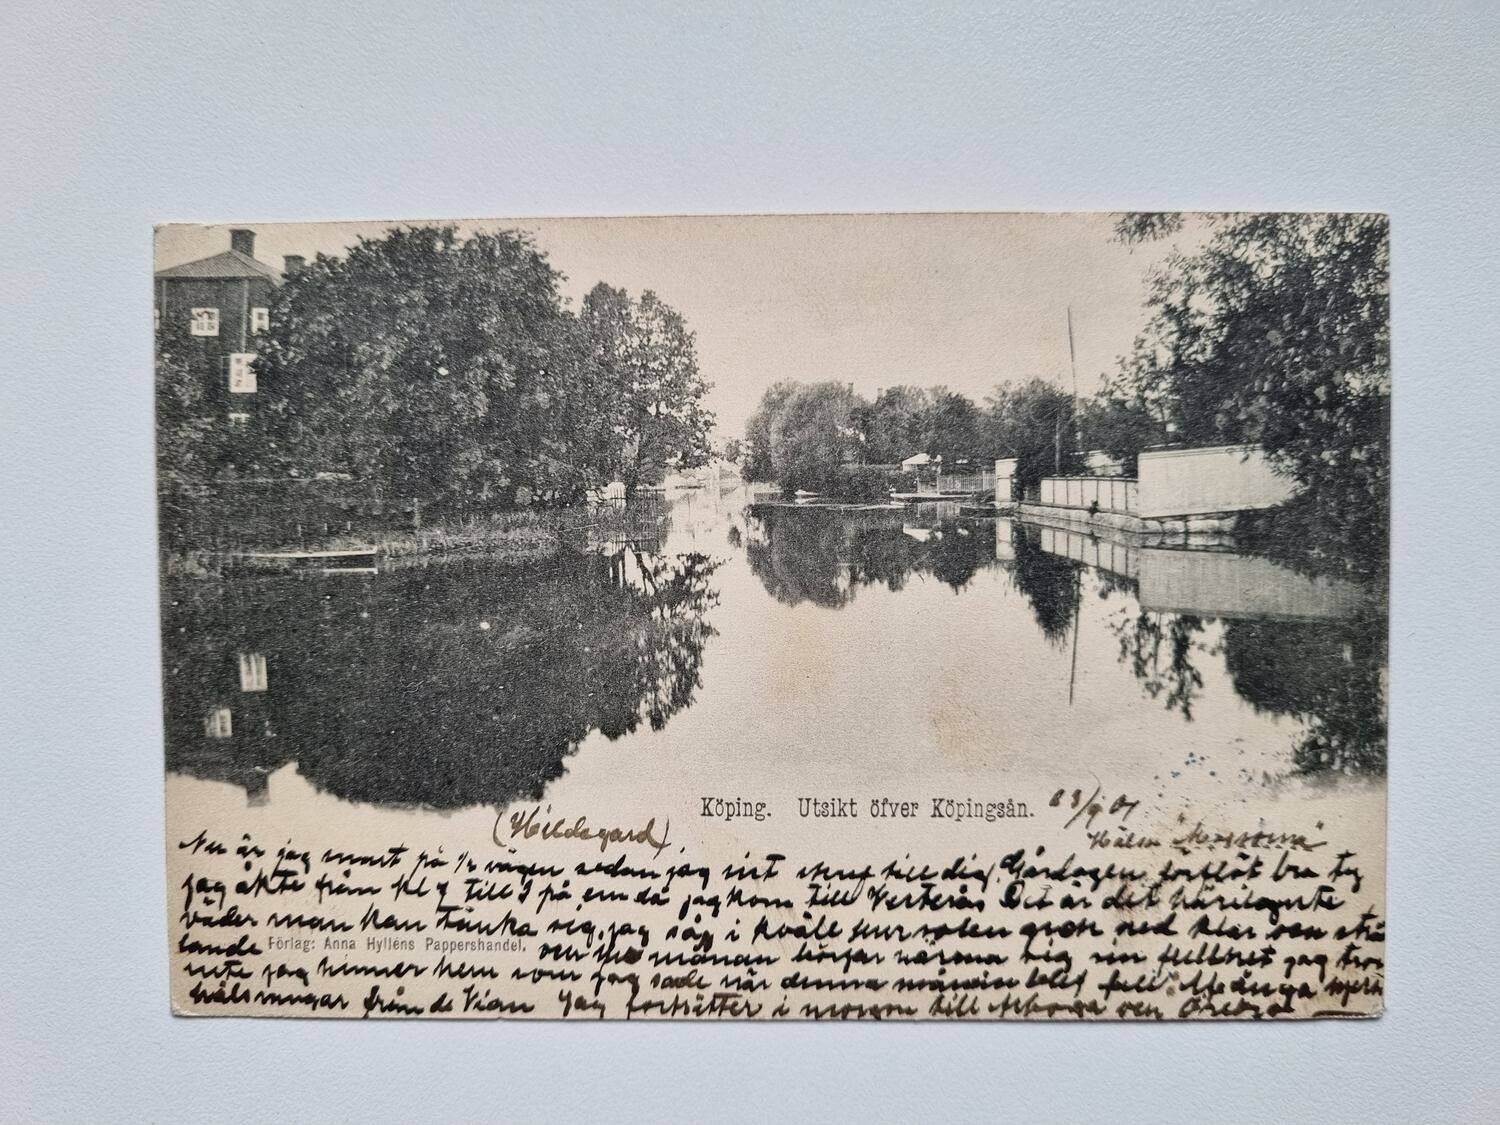 Köping. Utsikt öfver Köpingsån. 23/9 01
(Hildegard)
Hälsa "Mossorna"
Nu är jag snart på 1/2 vägen sedan jag sist skref till dig. Gårdagen förflöt bra ty
jag åkte från kl 7 till 9 på em då jag kom till Vesterås Det är det härligaste
väder man kan tänka sig, jag såg i kväll hur solen gick ned klar och strå
lande
Förlag: Anna Hylléns Pappershandel.
och hur månan börjar närma sig sin fullhet jag tror
inte jag hinner hem som jag sade när denna månen blef full. Många hjert
hälsningar från de Vian Jag fortsätter i morgon till Arboga och Örebro